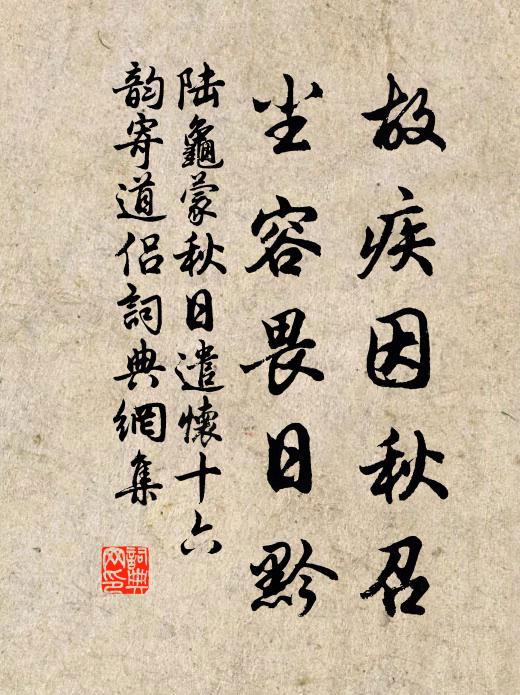 故疾因秋召
尘容畏日黔
陆龜蒙秋日遣懷十六
韵寄道侣詞典網集
詞典
网印